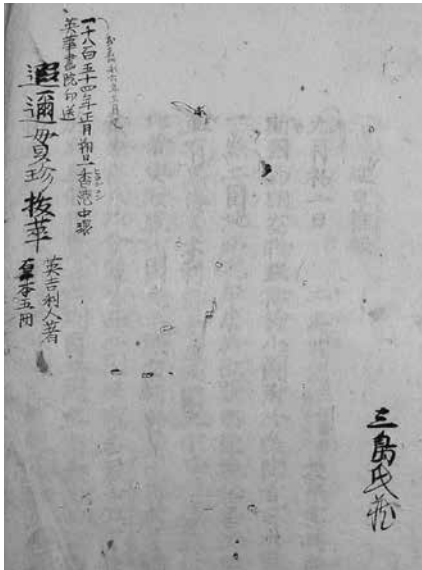 三島氏蔵
一千八百五十四年正月朔旦香港中環
英華書院印送
遐邇貫珍 抜萃
英吉利人著